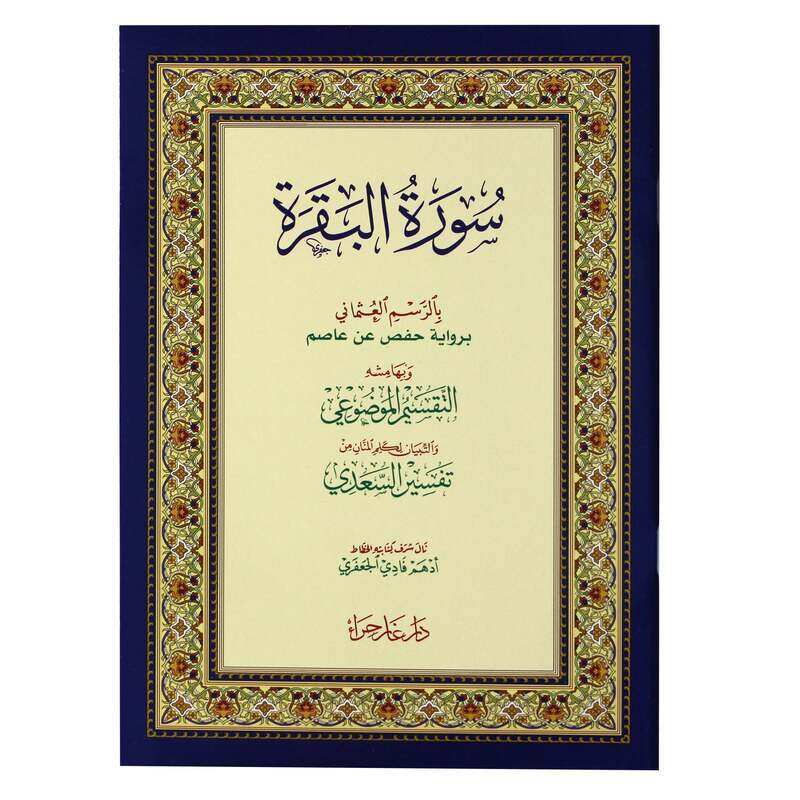 سُورَةُ البَقَرَة
جعفري
بِالرَّسْمِ العُثماني
برواية حفص عن عاصم
وَبِهَامِشِه
التَّقسِيْمُ المَوضُوعي
وَالتِّبيَان لِكَلِمِ المَنَّانِ مِنْ
تَفسِير السَّعدِي
نَالَ شَرَفَ كِتَابَتِهِ الخطَّاط
أدهَم فَادِي الجَعفَري
دَار غَار حِرَاء